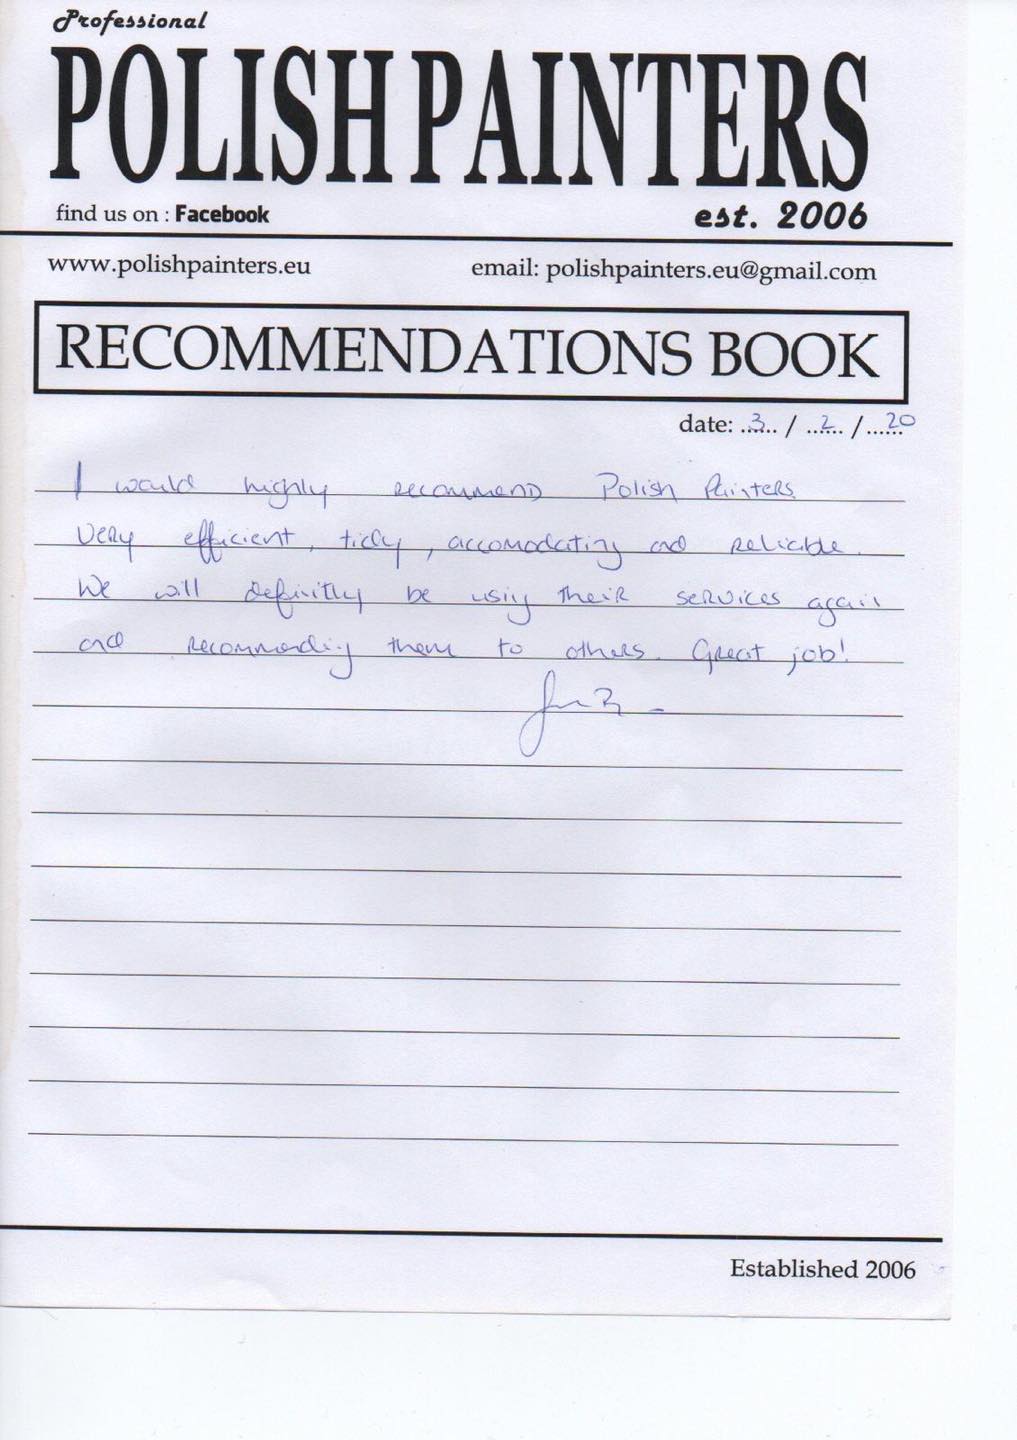 Professional
POLISH PAINTERS
find us on : Facebook
est. 2006
www.polishpainters.eu email: polishpainters.eu@gmail.com
RECOMMENDATIONS BOOK
date: ..3.. / ..2.. / ..20
I would highly recommend Polish Painters
Very efficient, tidy, accomodating and reliable.
We will definitly be using their services again
and recommending them to others. Great job!
Established 2006